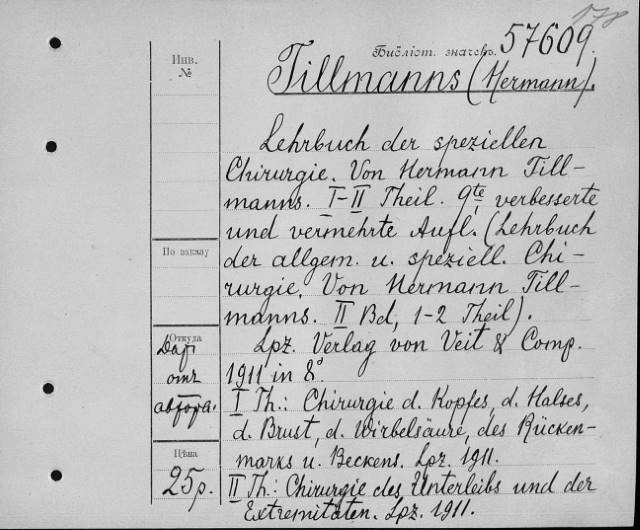 178
Библіот. значекъ. 57609.
Инв.
№
Tillmanns (Hermann).
Lehrbuch der speziellen
Chirurgie. Von Hermann Till-
manns. I-II Theil. 9te verbesserte
und vermehrte Aufl. (Lehrbuch
По заказу
der allgem. u. speziell. Chi-
rurgie. Von Hermann Till-
manns. II Bd, 1-2 Theil).
Откуда
Даръ
отъ
автора.
Lpz. Verlag von Veit & Comp.
1911 in 8°.
I Th.: Chirurgie d. Kopfes, d. Halses,
d. Brust, d. Wirbelsäure, des Rücken-
marks u. Beckens. Lpz. 1911.
Цѣна
25р.
II Th.: Chirurgie des Unterleibs und der
Extremitäten. Lpz. 1911.